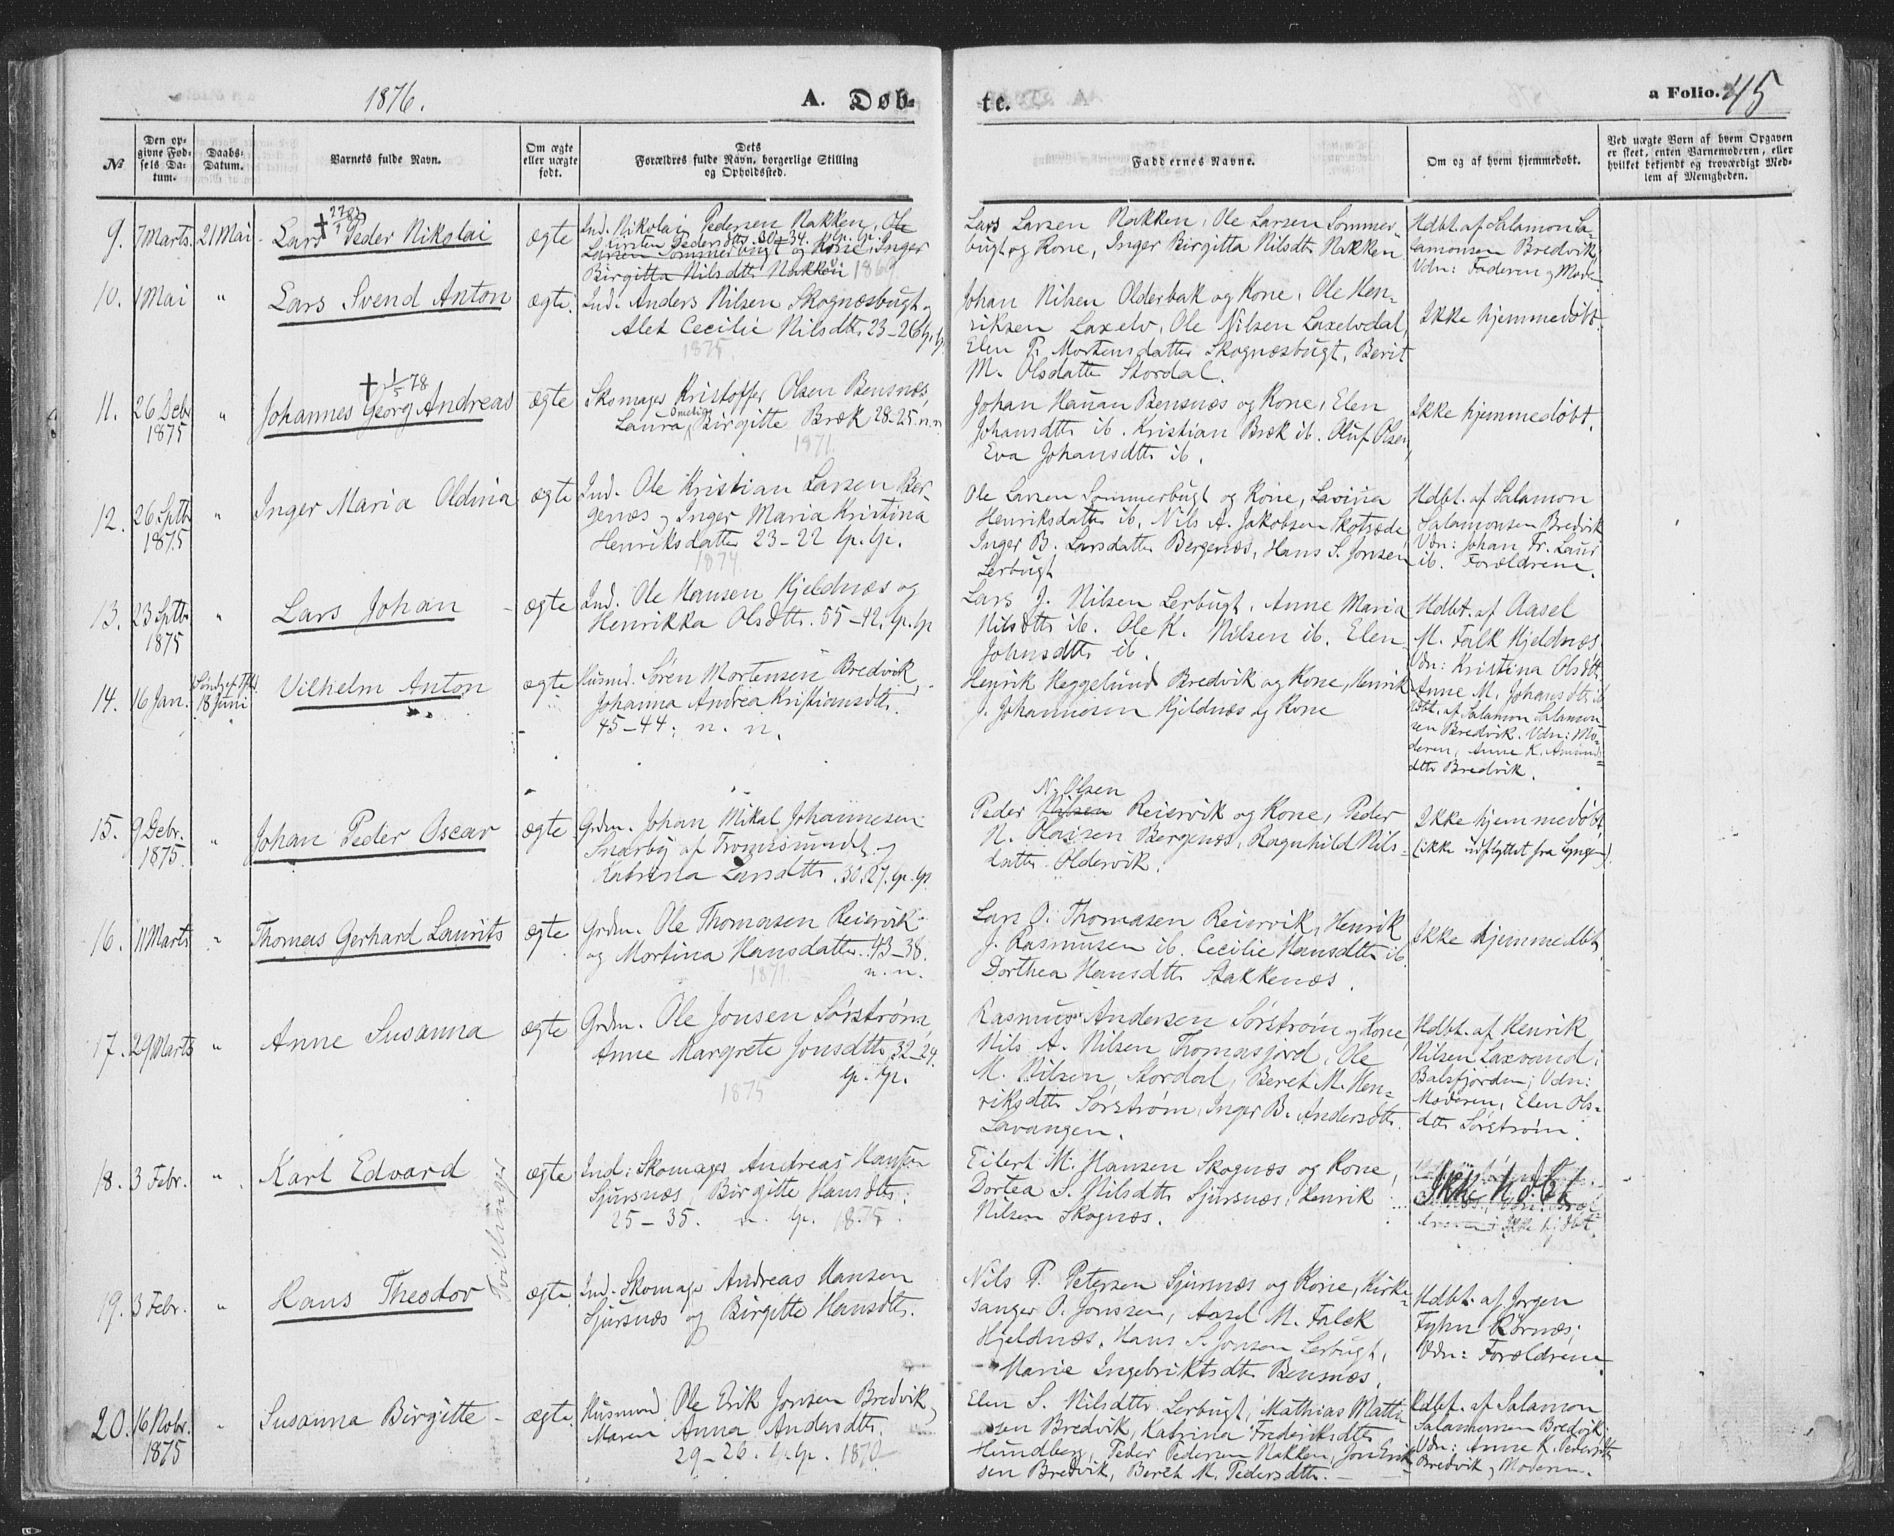 1876.
A. Døb-
te.
a Folio. 45
№
Den op-
givne Fød-
sels Da-
tum.
Daabs-
Datum.
Barnets fulde Navn.
Om ægte
eller uægte
født.
Dets
Forældres fulde Navn, borgerlige Stilling
og Opholdssted.
Faddernes Navne.
Om og af hvem hjemmedøbt.
Ved uægte Børn af hvem Opgaven
er skeet, enten Barnemoderen, eller
hvilket bekjendt og troværdigt Med-
lem af Menigheden.
9. 7 Marts. 21 Mai
Lars Peder Nikolai
ægte
Ind. Nikolai Pedersen Nakken, Ole
Kirsten Pedersdtr. 30-34 lp. lp.
Larsen Sommerbugt og Kone, Inger
Birgitta Nilsdtr Nakken 1869
Lars Larsen Nakken, Ole Larsen Sommer-
bugt og Kone, Inger Birgitta Nilsdtr Nakken
Hdbt. af Salamon Sa-
lamonsen Bredvik,
Vdn: Faderen og Mode-
10. 1 Mai "
Lars Svend Anton
ægte.
Ind. Anders Nilsen Skognæsbugt og
Alet Cecilie Nilsdtr 23-26 lp. lp.
1875.
Johan Nilsen Olderbak og Kone, Ole Hen-
riksen Laxelv, Ole Nilsen Laxelvdal,
Elen P. Mortensdatter Skognæsbugt, Berit
M. Olsdatter Stordal.
Ikke hjemmedøbt.
11. 26 Debr 1875 "
† 1/5 78
Johannes Georg Andreas
ægte
Skomager Kristoffer Olsen Bensnæs,
Laura Ometig Birgitte Bræk 28-25 n. n
1871.
Johan Hauan Bensnæs og Kone, Elen
Johansdtr ib. Kristian Bræk ib. Oluf Olsen,
Eva Johansdtr ib.
Ikke hjemmedøbt.
12. 26 Sptbr 1875 "
Inger Maria Oldina
ægte
Ind. Ole Kristian Larsen Ber-
genæs og Inger Maria Kristina
Henriksdatter 23-22 lp. lp.
1874.
Ole Larsen Sommerbugt og Kone, Lavina
Henriksdatter ib, Nils A. Jakobsen Skotsæde,
Inger B. Larsdatter Bergenæs, Hans S. Jonsen
Lerbugt
Hdbt. af Salamon
Salamonsen Bredvik
Vdn: Johan Fr. Laur
ib. Forældrene.
13. 23 Sptbr 1875 "
Lars Johan
ægte
Ind. Ole Hansen Kjeldnæs og
Henrikka Olsdtr. 55-42. lp. lp
Lars J. Nilsen Lerbugt, Anne Maria
Nilsdtr ib. Ole K. Nilsen ib. Elen
Johnsdtr ib.
Hdbt. af Aasel
M. Falk Kjeldnæs
Vdn: Kristina Olsdtr
Anne M. Johansdtr ib
14. 16 Jan. 18 Juni
Vilhelm Anton
ægte
Husmd. Søren Mortensen Bredvik,
Johanna Andrea Kristiansdtr.
45-44; n. n.
Henrik Heggelund Bredvik og Kone, Henrik
J. Johannesen Kjeldnæs og Kone
Hdbt. af Salamon Salamon-
sen Bredvik. Vdn: Mo-
deren, Anne K. Amund-
dtr Bredvik.
15. 9 Debr. 1875. "
Johan Peder Oscar
ægte
Grdm. Johan Mikal Johannesen
Snarby af Tromsøsundet og
Katrina Larsdtr. 30.27. lp. lp.
N. Olsen
Peder Nilsen Reiervik og Kone, Peder
N. Olaisen Bergenæs, Ragnhild Nils-
datter Oldervik.
Ikke hjemmedøbt
(ikke udflyttet fra Lyngen).
16. 11 Marts "
Thomas Gerhard Laurits
ægte
Grdm. Ole Thomasen Reiervik
og Mortina Hansdatter. 43-38.
1871 n. n.
Lars O. Thomasen Reiervik, Henrik
J. Rasmusen ib. Cecilie Hansdtr ib.
Dorthea Hansdtr Stakkenæs.
Ikke hjemmedbt.
17. 29 Marts "
Anne Susanna
ægte
Grdm. Ole Jonsen Sørstrøm,
Anne Margrete Jonsdtr 32-24.
1875 lp. lp.
Rasmus Andersen Sørstrøm og Kone,
Nils A. Nilsen Thomasjord, Ole
M. Nilsen, Stordal, Beret M. Hen-
riksdtr Sørstrøm, Inger B. Andersdtr.
Lavangen.
Hdbt. af Henrik
Nilsen Laxvand,
Balsfjorden; Vdn:
Moderen, Elen Ols-
dtr Sørstrøm.
18. 3 Febr. "
Karl Edvard
Tvillinger
ægte
Ind: Skomager Andreas Hansen
Sjursnæs, Birgitte Hansdtr.
25-35. n. lp. 1875.
Eilert M. Hansen Skognæs og Kone,
Dortea S. Nilsdtr Sjursnæs, Henrik
Nilsen Skognæs.
Ikke h.døbt
19. 3 Febr. "
Hans Theodor
ægte
Ind. Skomager Andreas Hansen
Sjursnæs og Birgitte Hansdtr.
Nils P. Petersen Sjursnæs og Kone, Kirke-
sanger O. Jonssen, Aasel M. Falck
Kjeldnæs. Hans S. Jonsen Lerbugt,
Marie Ingebriktsdtr Bensnæs.
Hdbt. af Jørgen
Fyhn Rørnæs;
Vdn: Forældrene
20. 16 Nobr. 1875 "
Susanna Birgitte
ægte.
Husmand Ole Erik Jonsen Bredvik,
Maren Anna Andersdtr.
29-26. lp. lp. 1870
Elen S. Nilsdtr Lerbugt, Mathias Mathi-
sen Bredvik, Katrina Frederiksdtr
Hundberg, Peder Pedersen Nakken, Jon Erik-
sen Bredvik, Beret M. Pedersdtr.
Hdbt. af Salamon
Salamonsen Bredvik.
Vdn: Anne K. Pedersdtr
Bredvik og Moderen.